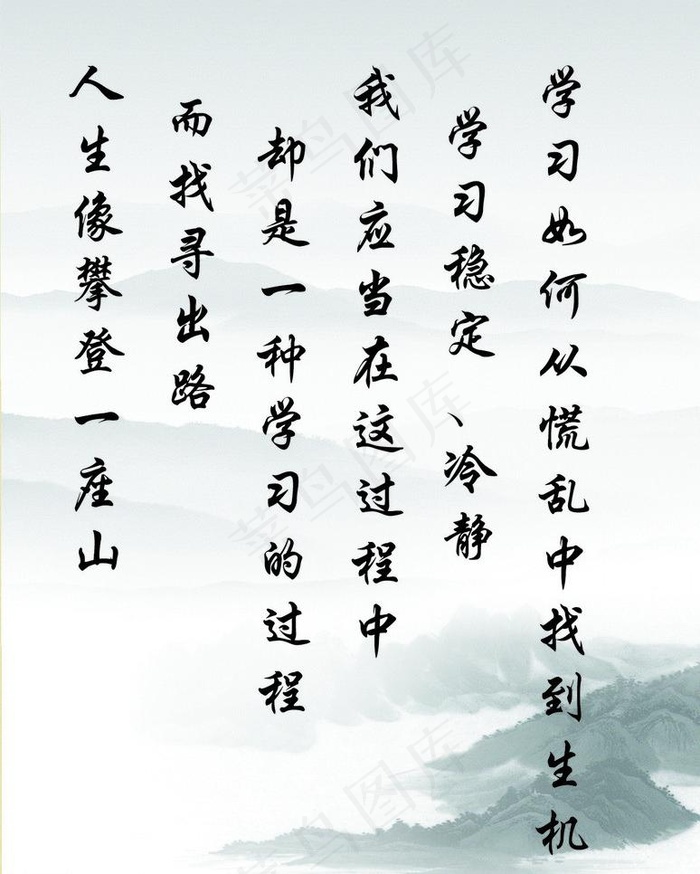 人生像攀登一座山
而找寻出路
却是一种学习的过程
我们应当在这过程中
学习稳定、冷静
学习如何从慌乱中找到生机
菜鸟图库
菜鸟图库
菜鸟图库